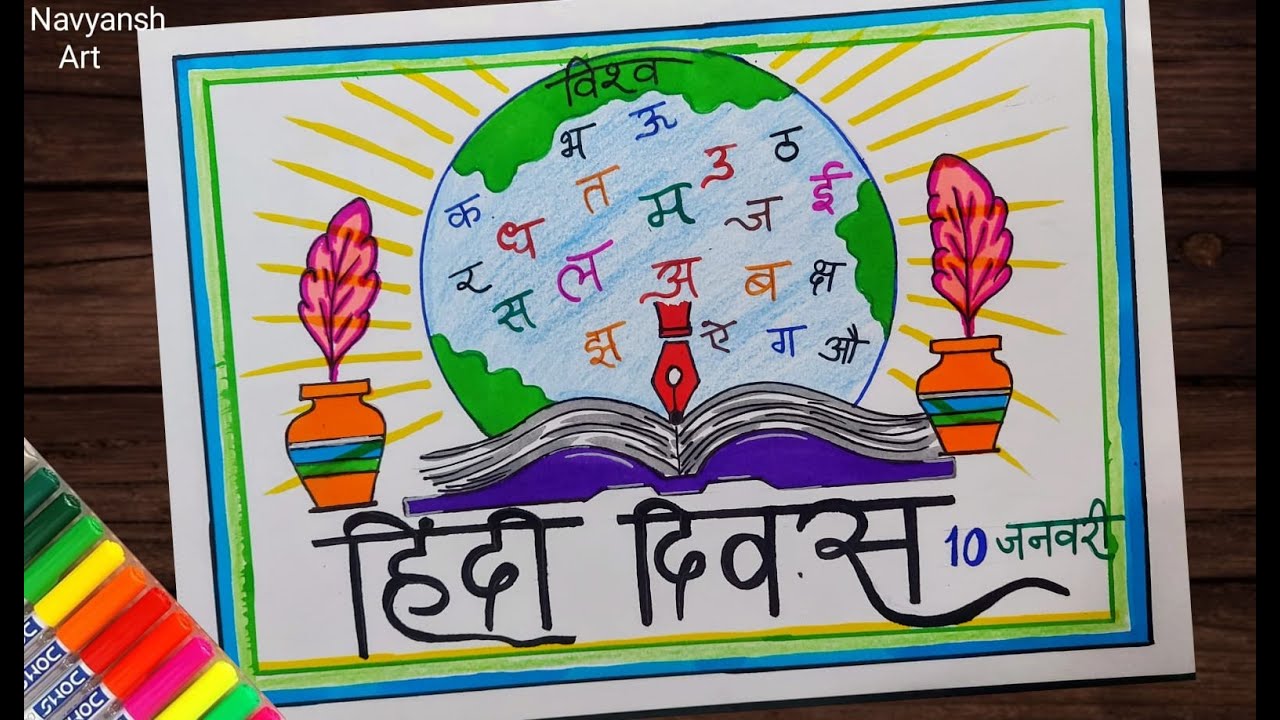 Navyansh
Art
विश्व
भ ऊ
त उ ठ
क ध म ज ई
र स ल अ ब क्ष
झ ऐ ग औ
हिंदी दिवस 10 जनवरी
DOMS
DOMS
DOMS